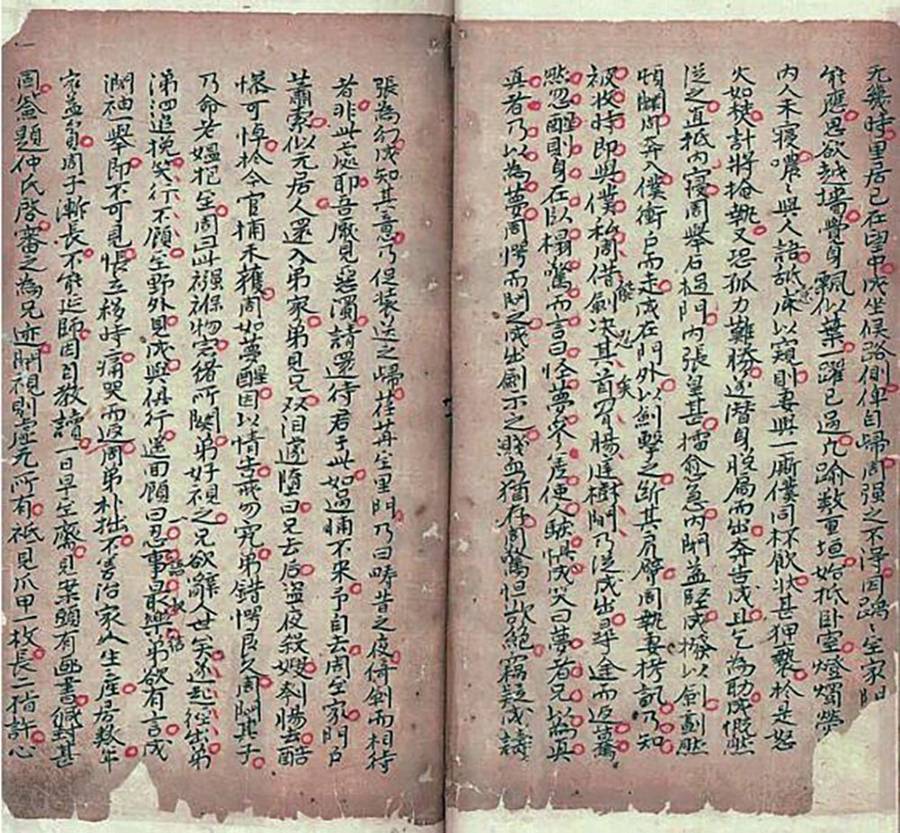 无幾時里居已在望中成坐候路側俾自歸周强之不得因踽踽至家門
能應思欲越墻覺身飄似葉一躍已過凢踰數重垣始抵卧室燈燭熒
内人未寝噥噥與人語舐窓以窺則妻與一厮僕同杯飲狀甚狎褻於是怒
火如焚計將掩執又恐孤力難勝遂潛身脱扃而出奔告成且乞為助成慨然
從之直抵内寢周舉石撾門内張皇甚擂愈急内閉益堅成撥以劍劃然
頓闢周奔入僕衝户而走成在門外以劍擊之斷其肩臂周執妻拷訊乃知
被收時即與僕私周借劍决其首罥腸庭樹間乃從成出尋途而返驀
然忽醒則身在卧榻驚而言曰怪夢參差使人駭惧成笑曰夢者兄以為真
真者乃以為夢周愕而問之成出劍示之濺血猶存周驚怛欲絶竊疑成譸
張為幻成知其意乃促装送之歸荏苒至里門乃曰疇昔之夜倚劍而相待
者非此處耶吾厭見惡濁請還待君于此如過晡不來予自去周至家門户
蕭索似无居人還入弟家弟見兄双泪遽墮曰兄去后盗夜殺嫂刳腸去酷
惨可悼於今官捕未獲周如夢醒因以情告戒勿究弟錯愕良久周問其子
乃命老媪抱至周曰此襁褓物宗緒所關弟好視之兄欲辭人世矣遂起徑出弟
涕泗追挽笑行不顧至野外見成與俱行遥回顧曰忍事最樂弟欲有言成
濶袖一舉即不可見悵立移時痛哭而返周弟朴拙不善治家人生産居数年
家益貧周子漸長不能延師因自教讀一日早至齋見案頭有函書緘封甚
固簽題仲氏啓審之為兄迹開視則虚元所有祇見爪甲一枚長二指許心